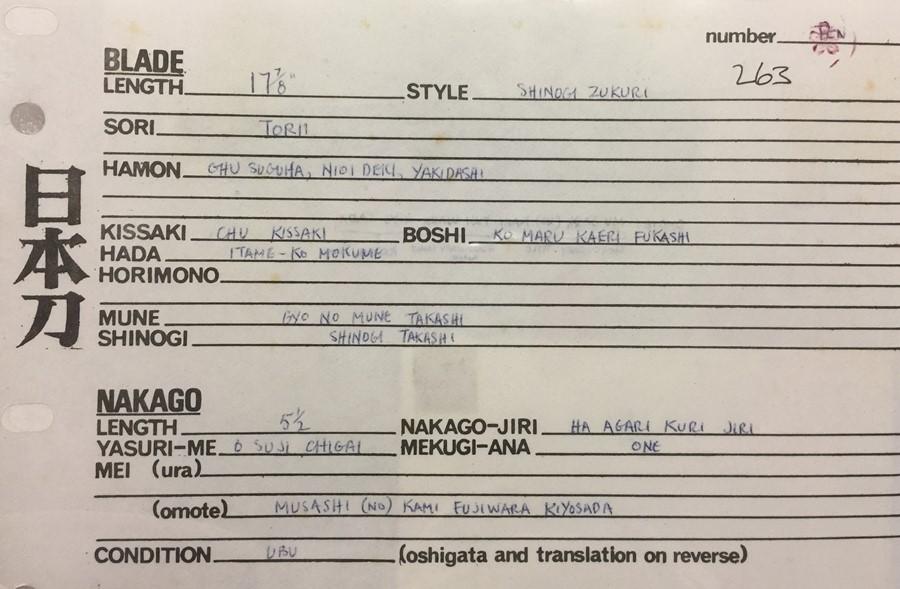 number PEN
BLADE 263
LENGTH 17 7/8" STYLE SHINOGI ZUKURI
SORI TORII
HAMON CHU SUGUHA, NIOI DEKI, YAKIDASHI
KISSAKI CHU KISSAKI BOSHI KO MARU KAERI FUKASHI
HADA ITAME-KO MOKUME
HORIMONO
MUNE GYO NO MUNE TAKASHI
SHINOGI SHINOGI TAKASHI
日本刀
NAKAGO
LENGTH 5 1/2 NAKAGO-JIRI HA AGARI KURI JIRI
YASURI-ME O SUJI CHIGAI MEKUGI-ANA ONE
MEI (ura)
(omote) MUSASHI (NO) KAMI FUJIWARA KIYOSADA
CONDITION UBU (oshigata and translation on reverse)